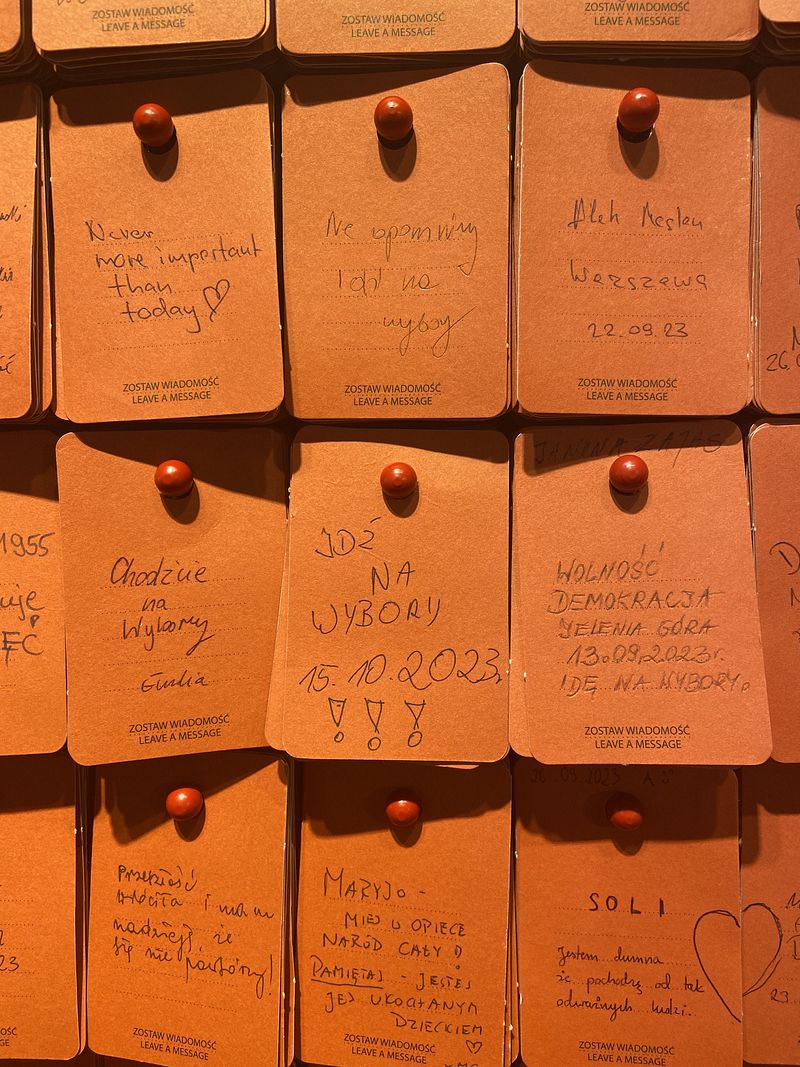 ZOSTAW WIADOMOŚĆ
LEAVE A MESSAGE
ZOSTAW WIADOMOŚĆ
LEAVE A MESSAGE
ZOSTAW WIADOMOŚĆ
LEAVE A MESSAGE
Never
more important
than
today
ZOSTAW WIADOMOŚĆ
LEAVE A MESSAGE
Nie zapomnimy
Idź na
wybory
ZOSTAW WIADOMOŚĆ
LEAVE A MESSAGE
Warszawa
22.09.23
ZOSTAW WIADOMOŚĆ
LEAVE A MESSAGE
1955
Chodźcie
na
Wybory
ZOSTAW WIADOMOŚĆ
LEAVE A MESSAGE
IDŹ
NA
WYBORY
15.10.2023r
!!!
JANINA ZAJĄC
WOLNOŚĆ
DEMOKRACJA
JELENIA GÓRA
13.09.2023r.
IDĘ NA WYBORY.
ZOSTAW WIADOMOŚĆ
LEAVE A MESSAGE
Przeszłość
wróciła i mam
nadzieję, że
się nie powtórzy!
ZOSTAW WIADOMOŚĆ
LEAVE A MESSAGE
MARYJO -
MIEJ W OPIECE
NARÓD CAŁY!
PAMIĘTAJ - JESTEŚ
JEJ UKOCHANYM
DZIECKIEM
ZOSTAW WIADOMOŚĆ
LEAVE A MESSAGE
26.09.2023
SOLI
Jestem dumna
że pochodzę od tak
odważnych ludzi..
ZOSTAW WIADOMOŚĆ
LEAVE A MESSAGE